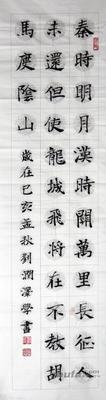 秦時明月漢時關萬里長征人
未還但使龍城飛將在不教胡
馬度陰山
歲在己亥孟秋劉潤澤學書